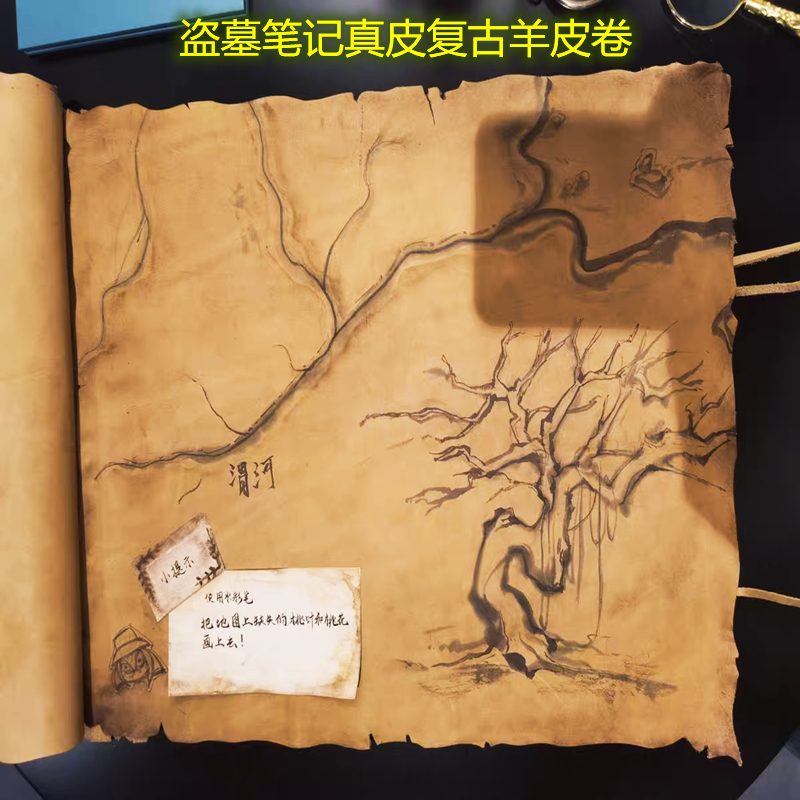 盗墓笔记真皮复古羊皮卷
渭河
小提示
使用水彩笔
把地图上缺失的桃汁和桃花
画上去!